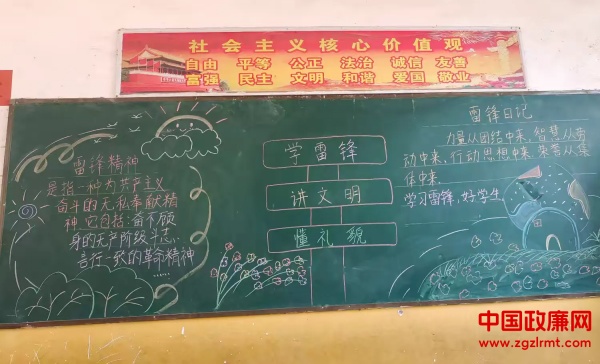 社会主义核心价值观
自由 平等 公正 法治 诚信 友善
富强 民主 文明 和谐 爱国 敬业
雷锋精神
是指一种为共产主义
奋斗的无私奉献精
神,它包括奋不顾
身的无产阶级斗志
言行一致的革命精神
学雷锋
讲文明
懂礼貌
雷锋日记
力量从团结中来,智慧从劳
动中来,行动思想中来,荣誉从集
体中来
学习雷锋,好学生
中国政廉网
www.zgzlrmt.com